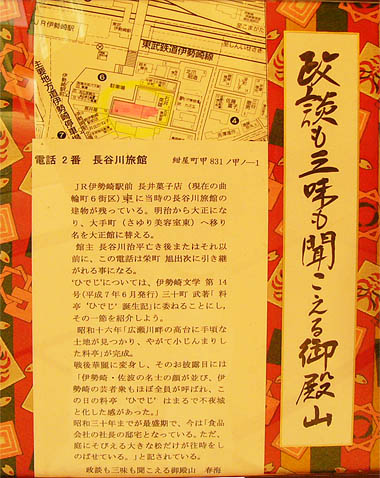 JR伊勢崎駅
東武鉄道伊勢崎線
主要地方道伊勢崎停車場
駐車場
6
7
電話 2番 長谷川旅館 紺屋町甲831ノ甲ノ一1
JR伊勢崎駅前 長井菓子店(現在の曲
輪町6街区)東に当時の長谷川旅館の
建物が残っている。明治から大正にな
り、大手町(さゆり美容室東)へ移り
名を大正館に替える。
館主 長谷川治平亡き後またはそれ以
前に、この電話は栄町 旭出次に引き継
がれる事になる。
“ひでじ”については、伊勢崎文学 第14
号(平成7年6月発行)三十町 武著「料
亭“ひでじ”誕生記」に委ねることにし、
その一節を紹介しよう。
昭和十六年「広瀬川畔の高台に手頃な
土地が見つかり、やがて小じんまりし
た料亭が完成。
戦後華麗に変身し、そのお披露目には
「伊勢崎・佐波の名士の顔が並び、伊勢
崎の芸者衆もほぼ全員が呼ばれ、こ
の日の料亭“ひでじ”はまるで不夜城
と化した感があった。」
昭和三十年までが最盛期で、今は「食品
会社の社長の邸宅となっている。ただ、
庭にそびえる大きな松だけが往時をし
のばせている。」と記されている。
政談も三味も聞こえる御殿山 春海
政談も三味も聞こえる御殿山